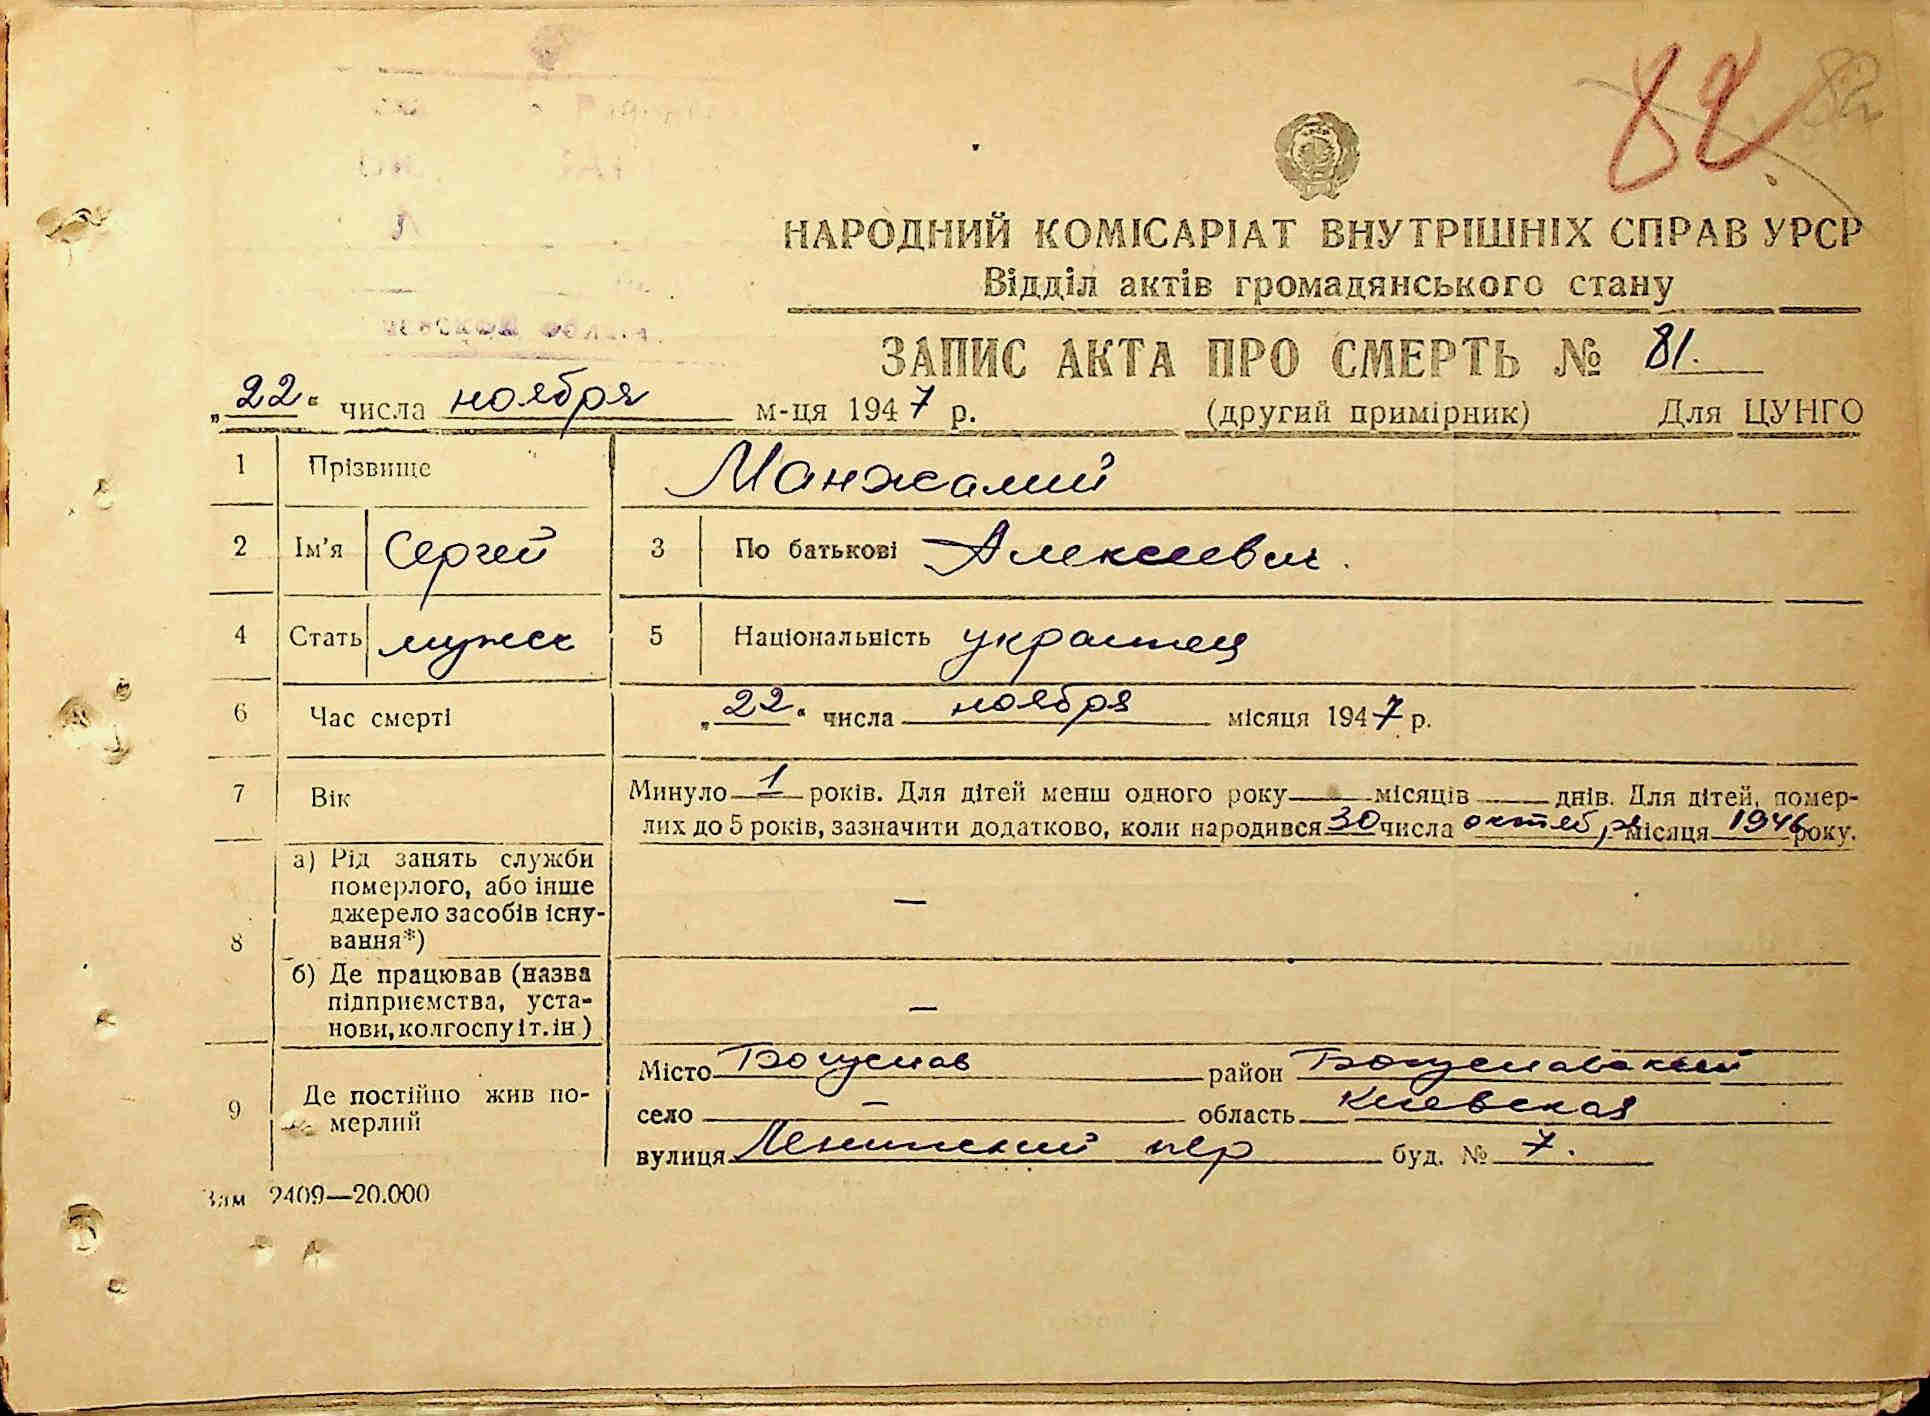 82
82
НАРОДНИЙ КОМІСАРІАТ ВНУТРІШНІХ СПРАВ УРСР
Відділ актів громадянського стану
ЗАПИС АКТА ПРО СМЕРТЬ № 81.
„22“ числа ноября м-ця 1947 р. (другий примірник) Для ЦУНГО
1 Прізвище Манжалий
2 Ім'я Сергей 3 По батькові Алексеевич.
4 Стать мужск 5 Національність украинец
6 Час смерті „22“ числа ноября місяця 1947 р.
7 Вік Минуло 1 років. Для дітей менш одного року місяців днів. Для дітей, помер-
лих до 5 років, зазначити додатково, коли народився 30 числа октября місяця 1946 року.
8 а) Рід занять служби
померлого, або інше
джерело засобів існу-
вання*) —
б) Де працював (назва
підприємства, уста-
нови, колгоспу і т. ін) —
9 Де постійно жив по-
мерлий
Місто Богуслав район Богуславский
село — область Киевская
вулиця Ленинский пер буд. № 7.
Зам 2409—20.000